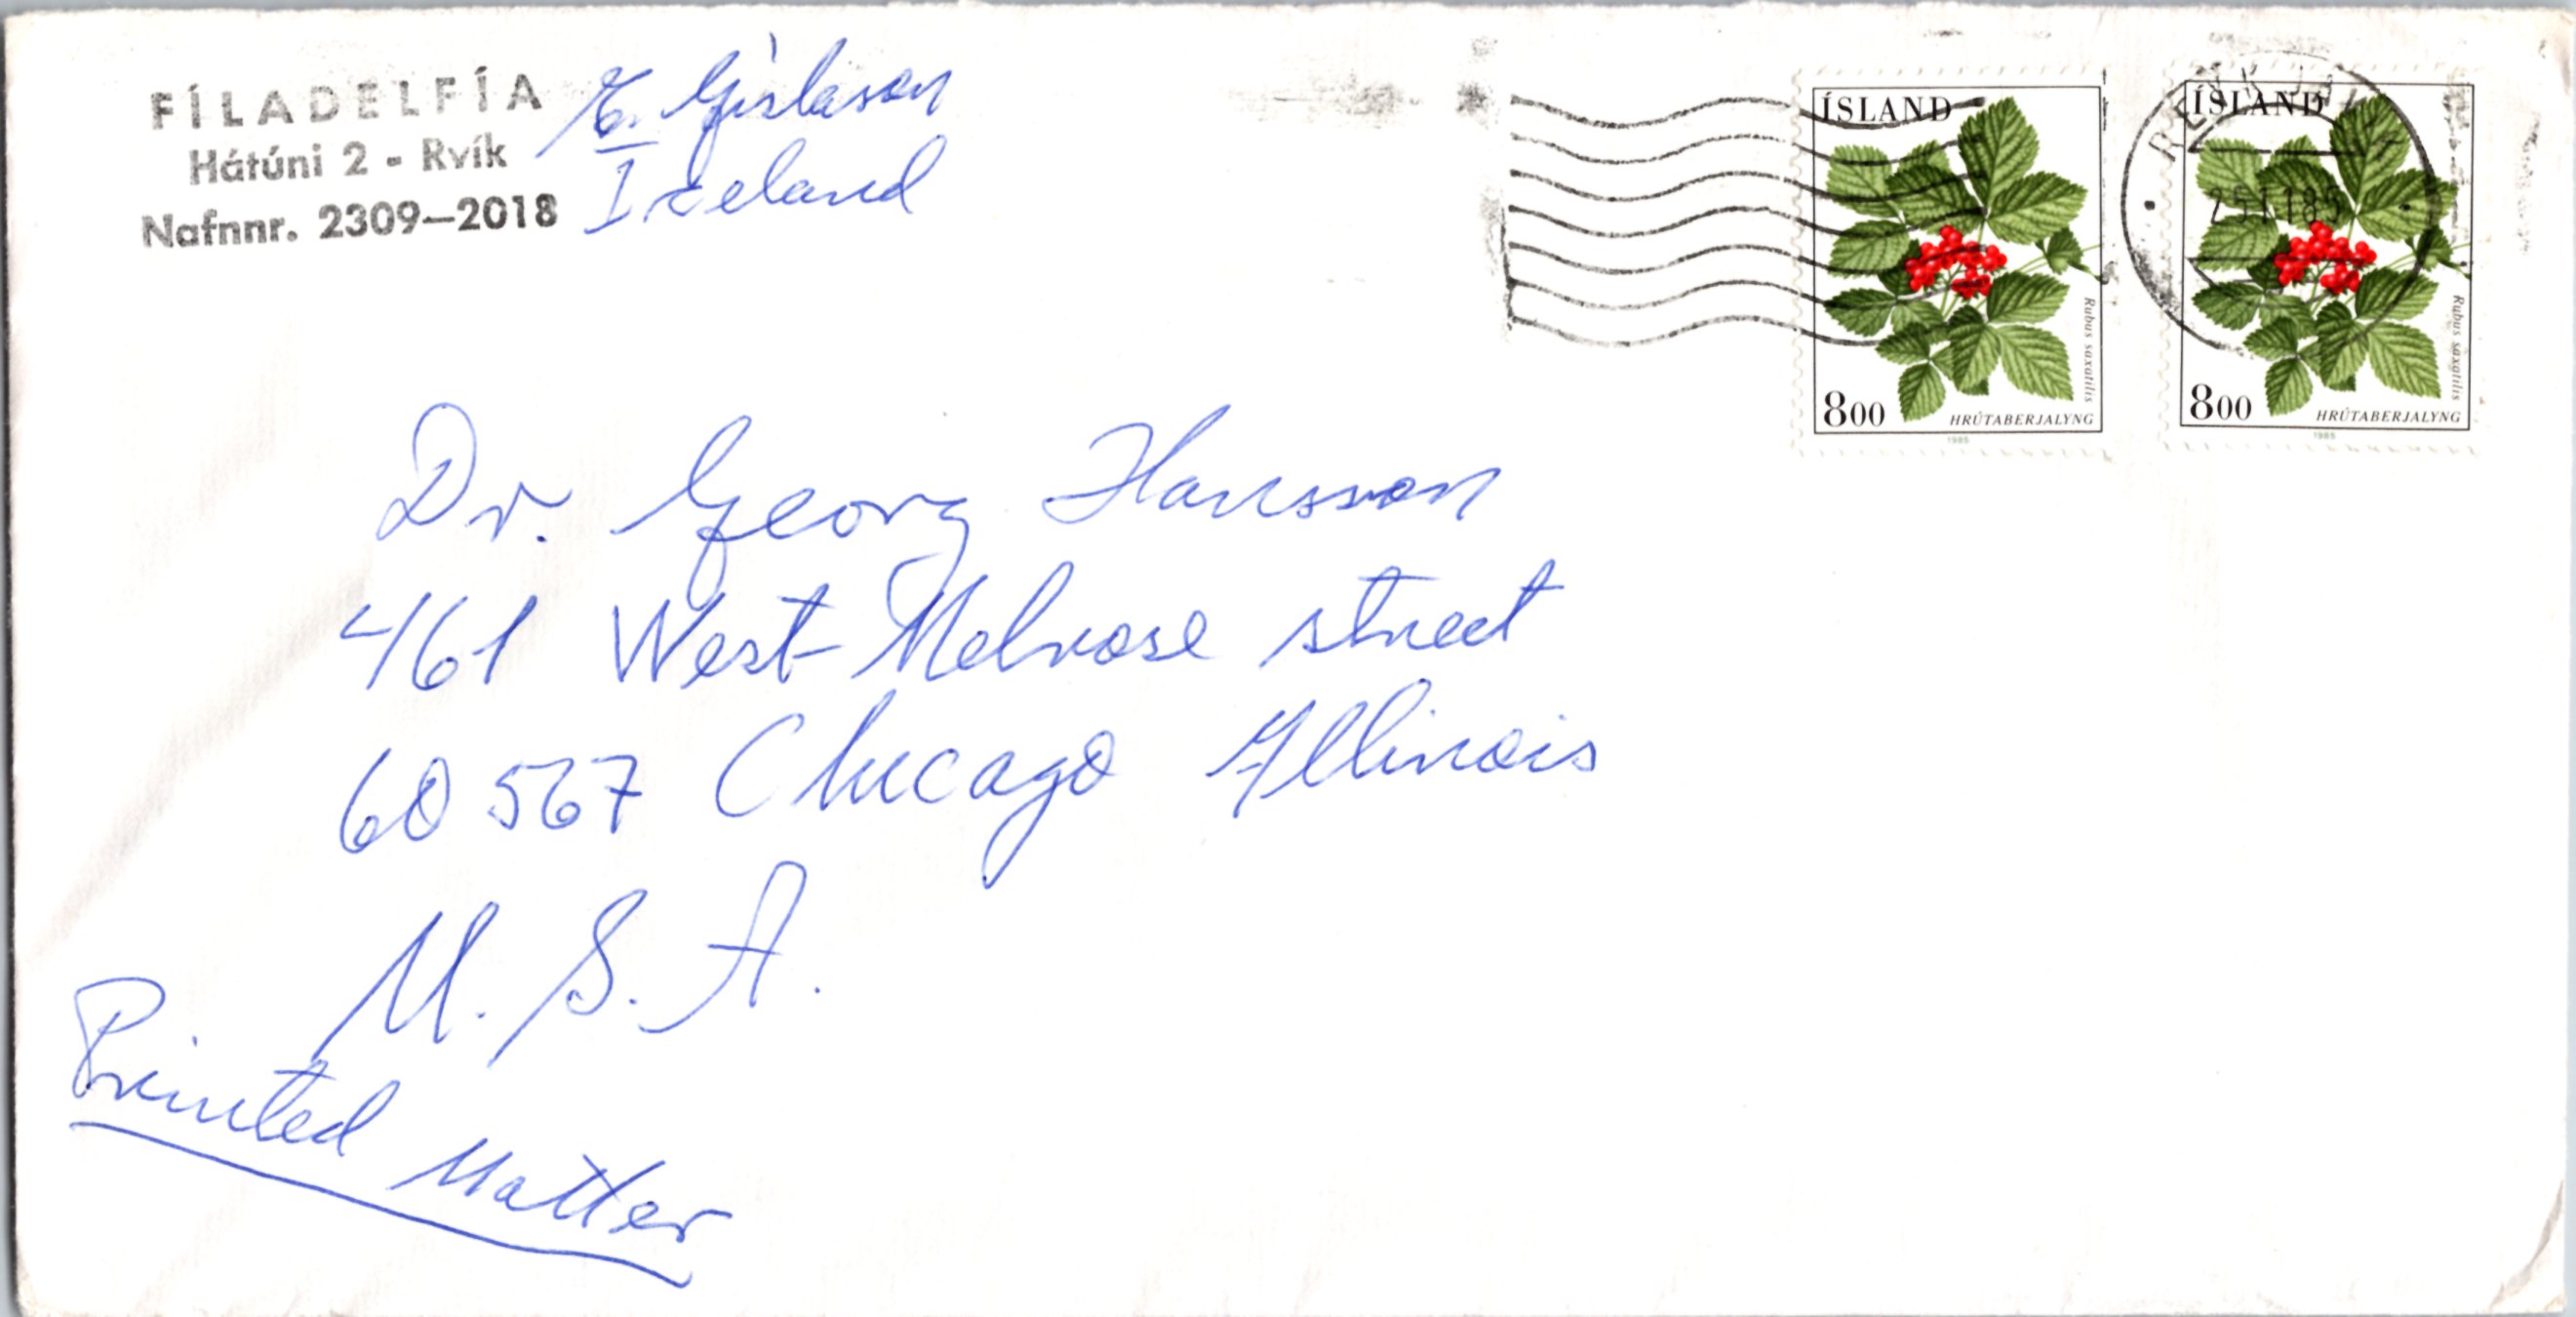 FÍLADELFÍA
Hátúni 2 - Rvík
Nafnnr. 2309—2018
E. Gíslason
Iceland
ÍSLAND
Rubus saxatilis
800
HRÚTABERJALYNG
1985
ÍSLAND
Rubus saxatilis
800
HRÚTABERJALYNG
1985
Dr. Georg Hansson
461 West Melrose street
60567 Chicago Illinois
U. S. A.
Printed Matter